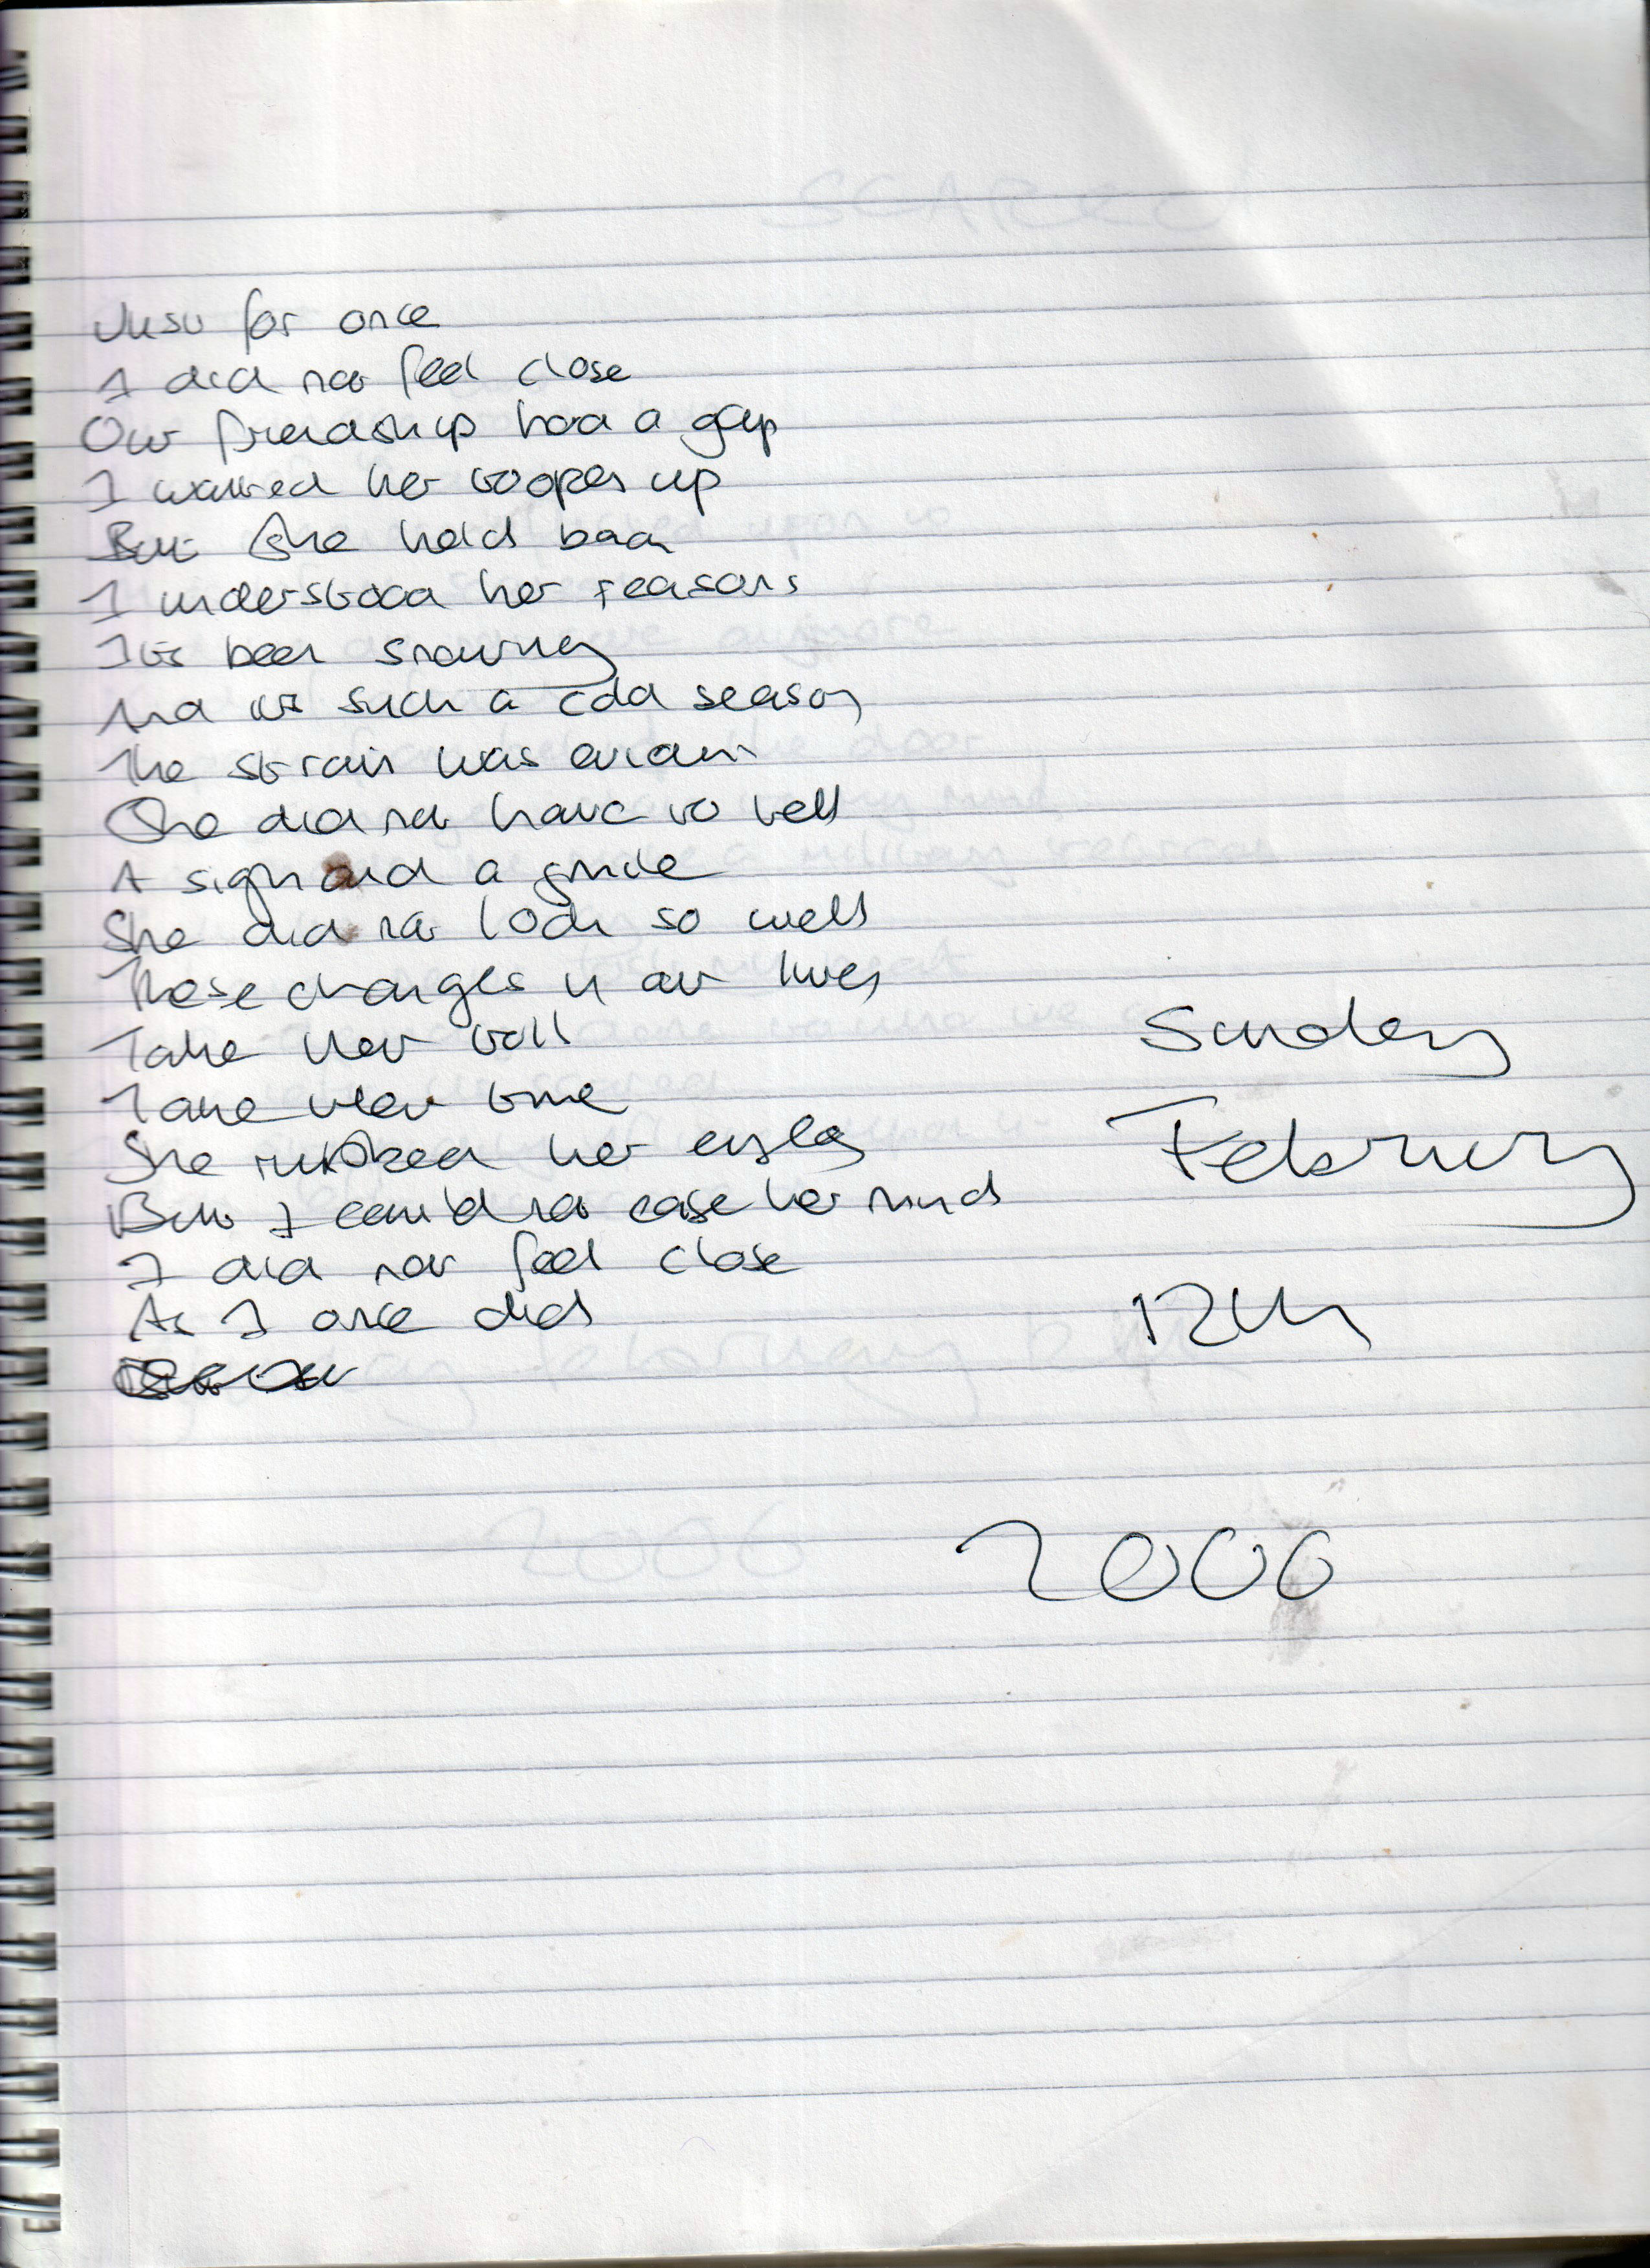 Just for once
I did not feel close
Our friendship had a gap
I wanted her to open up
But she held back
I understood her reasons
Its been snowing
And its such a cold season
The strain was evident
She did not have to tell
A sigh and a smile
She did not look so well
These changes in our lives
Take their toll
Take their time
She rubbed her eyes
But I could not ease her mind
I did not feel close
As I once did
Sunday
February
12th
2006